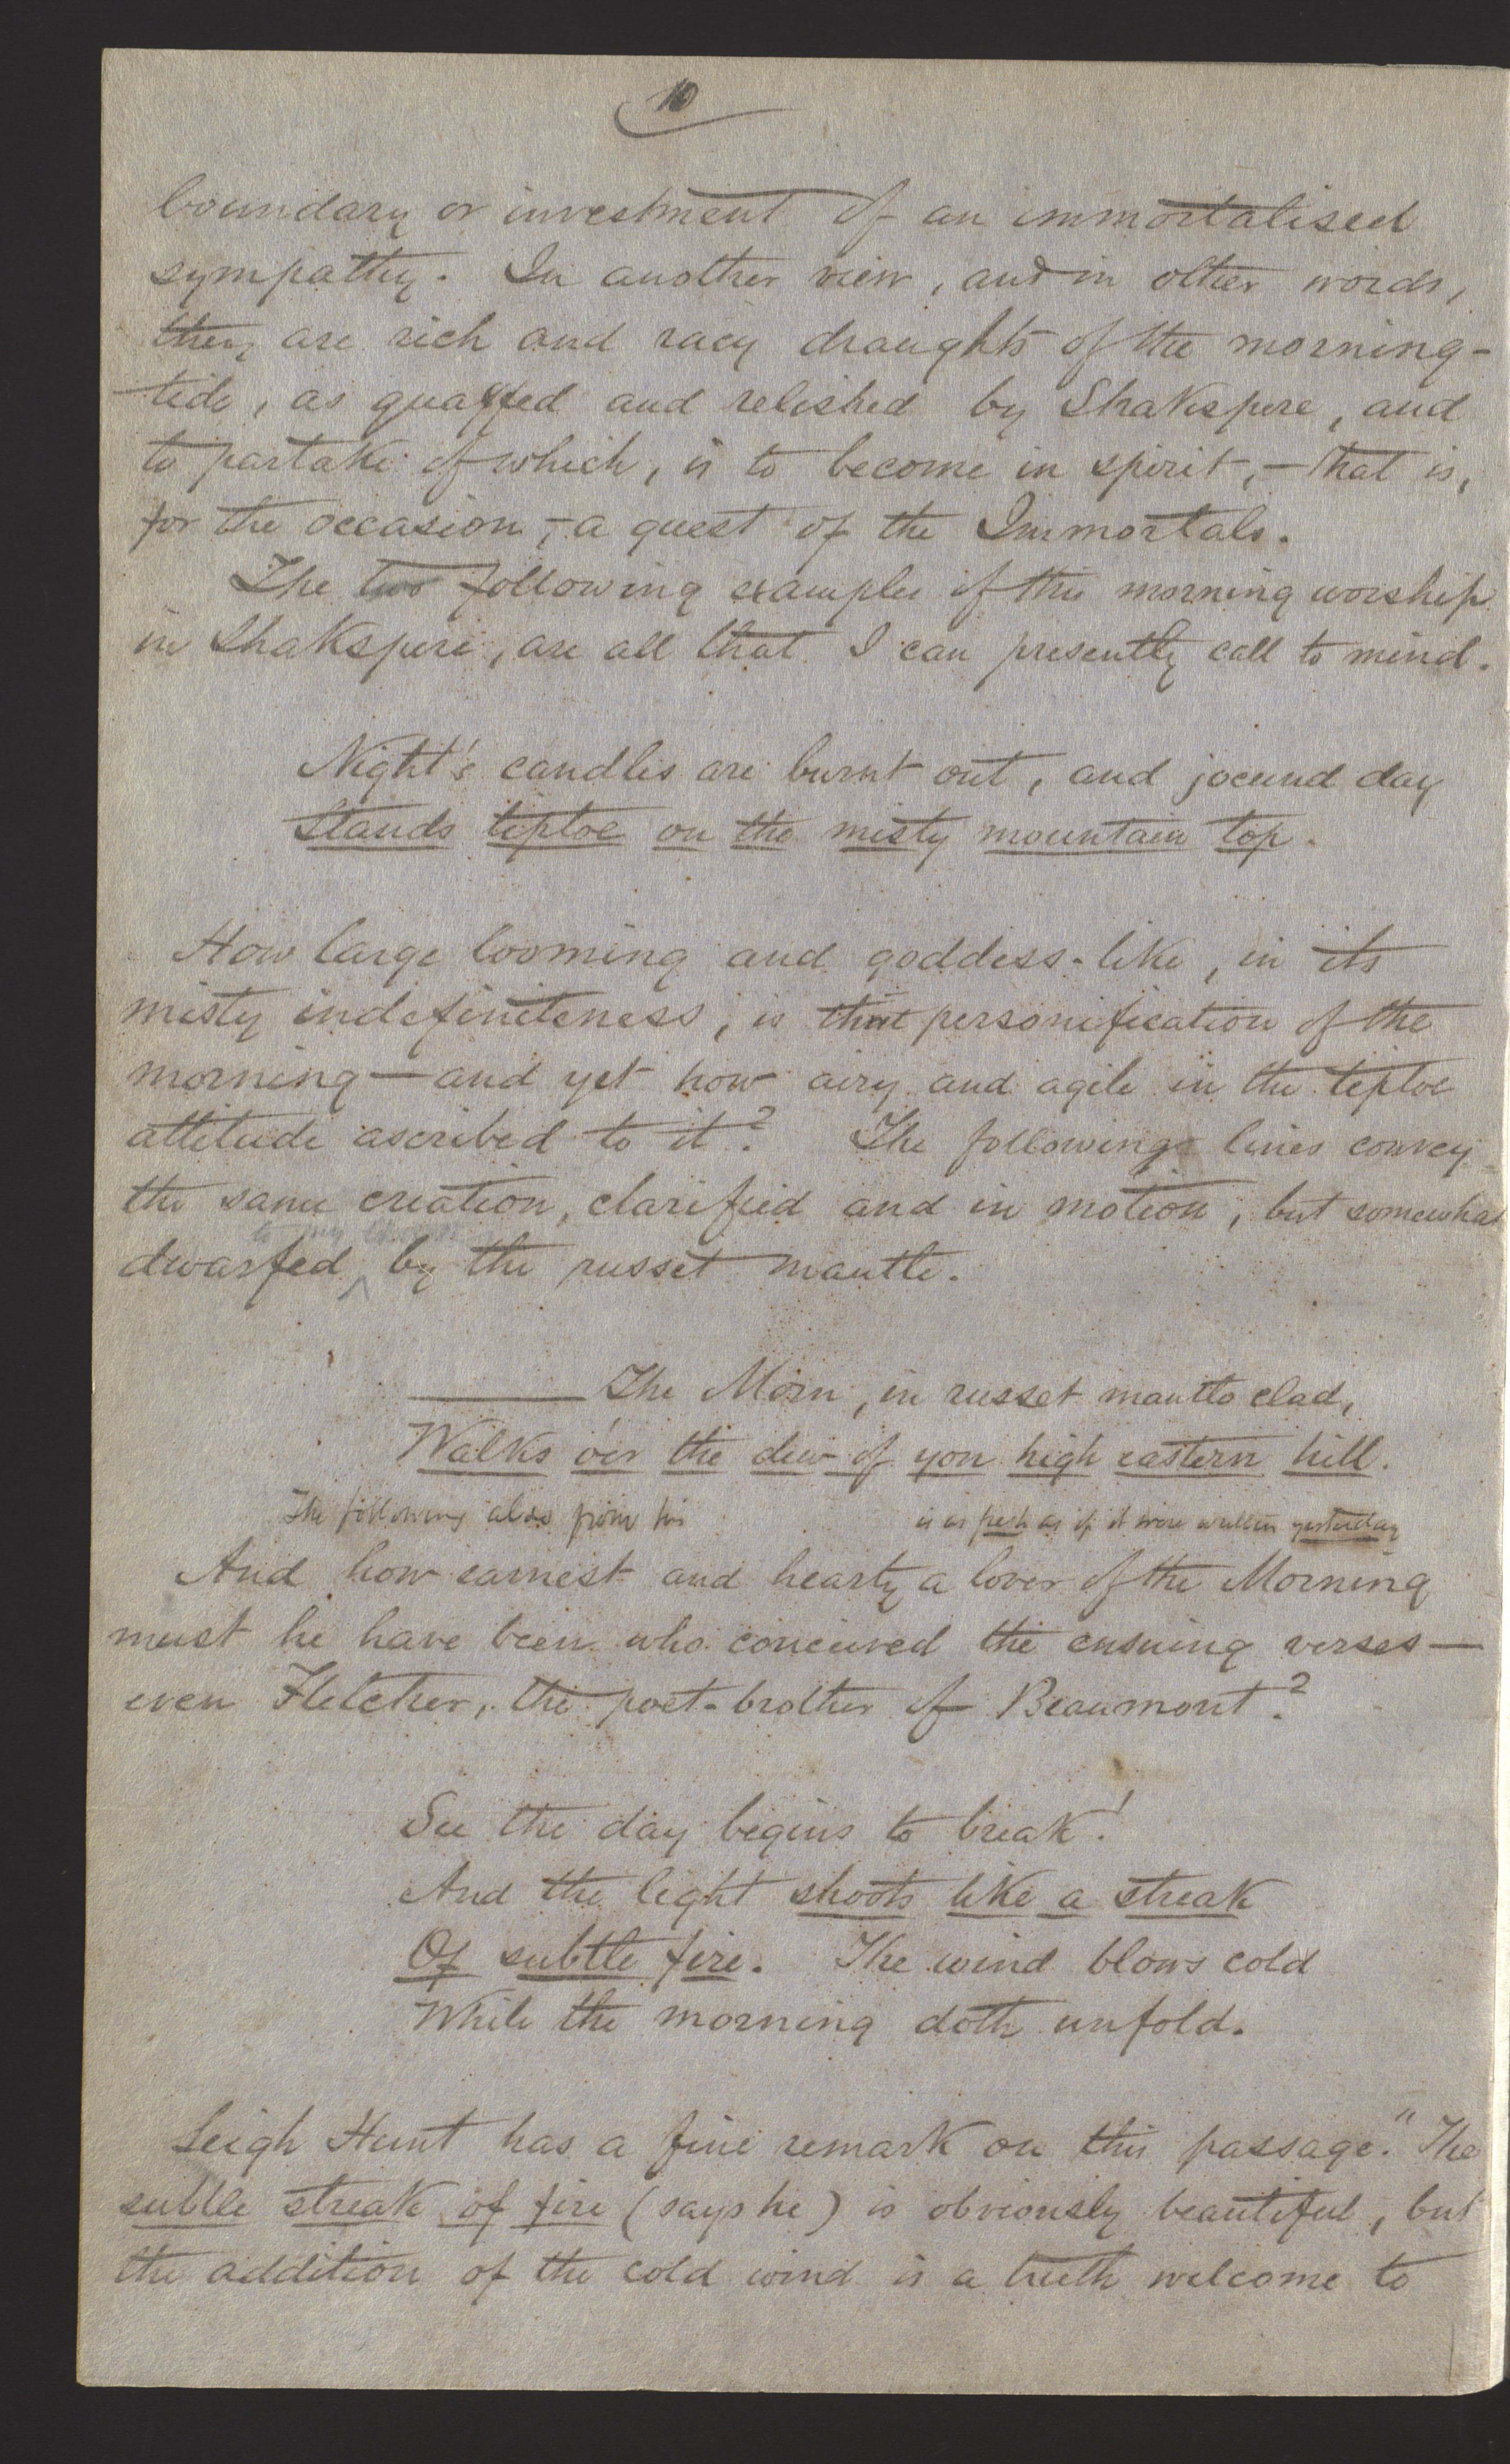 10
boundary or investment of an immortalised
sympathy. In another view, and in other words,
they are rich and racy draughts of the morning-
tide, as quaffed and relished by Shakspere, and
to partake of which, is to become in spirit, — that is,
for the occasion, — a guest of the Immortals.
The two following examples of this morning worship
in Shakspere, are all that I can presently call to mind.
Night's candles are burnt out, and jocund day
Stands tiptoe on the misty mountain top.
How large looming and goddess-like, in its
misty indefiniteness, is that personification of the
morning — and yet how airy and agile in the tiptoe
attitude ascribed to it? The following lines convey
the same creation, clarified and in motion, but somewhat
to my
dwarfed by the russet mantle.
The Morn, in russet mantle clad,
Walks o'er the dew of yon high eastern hill.
The following also from his is as fresh as if it were written yesterday
And how earnest and hearty a lover of the Morning
must he have been who conceived the ensuing verses —
even Fletcher, the poet-brother of Beaumont?
See the day begins to break!
And the light shoots like a streak
Of subtle fire. The wind blows cold
While the morning doth unfold.
Leigh Hunt has a fine remark on this passage. "The
subtle streak of fire (says he) is obviously beautiful, but
the addition of the cold wind is a truth welcome to